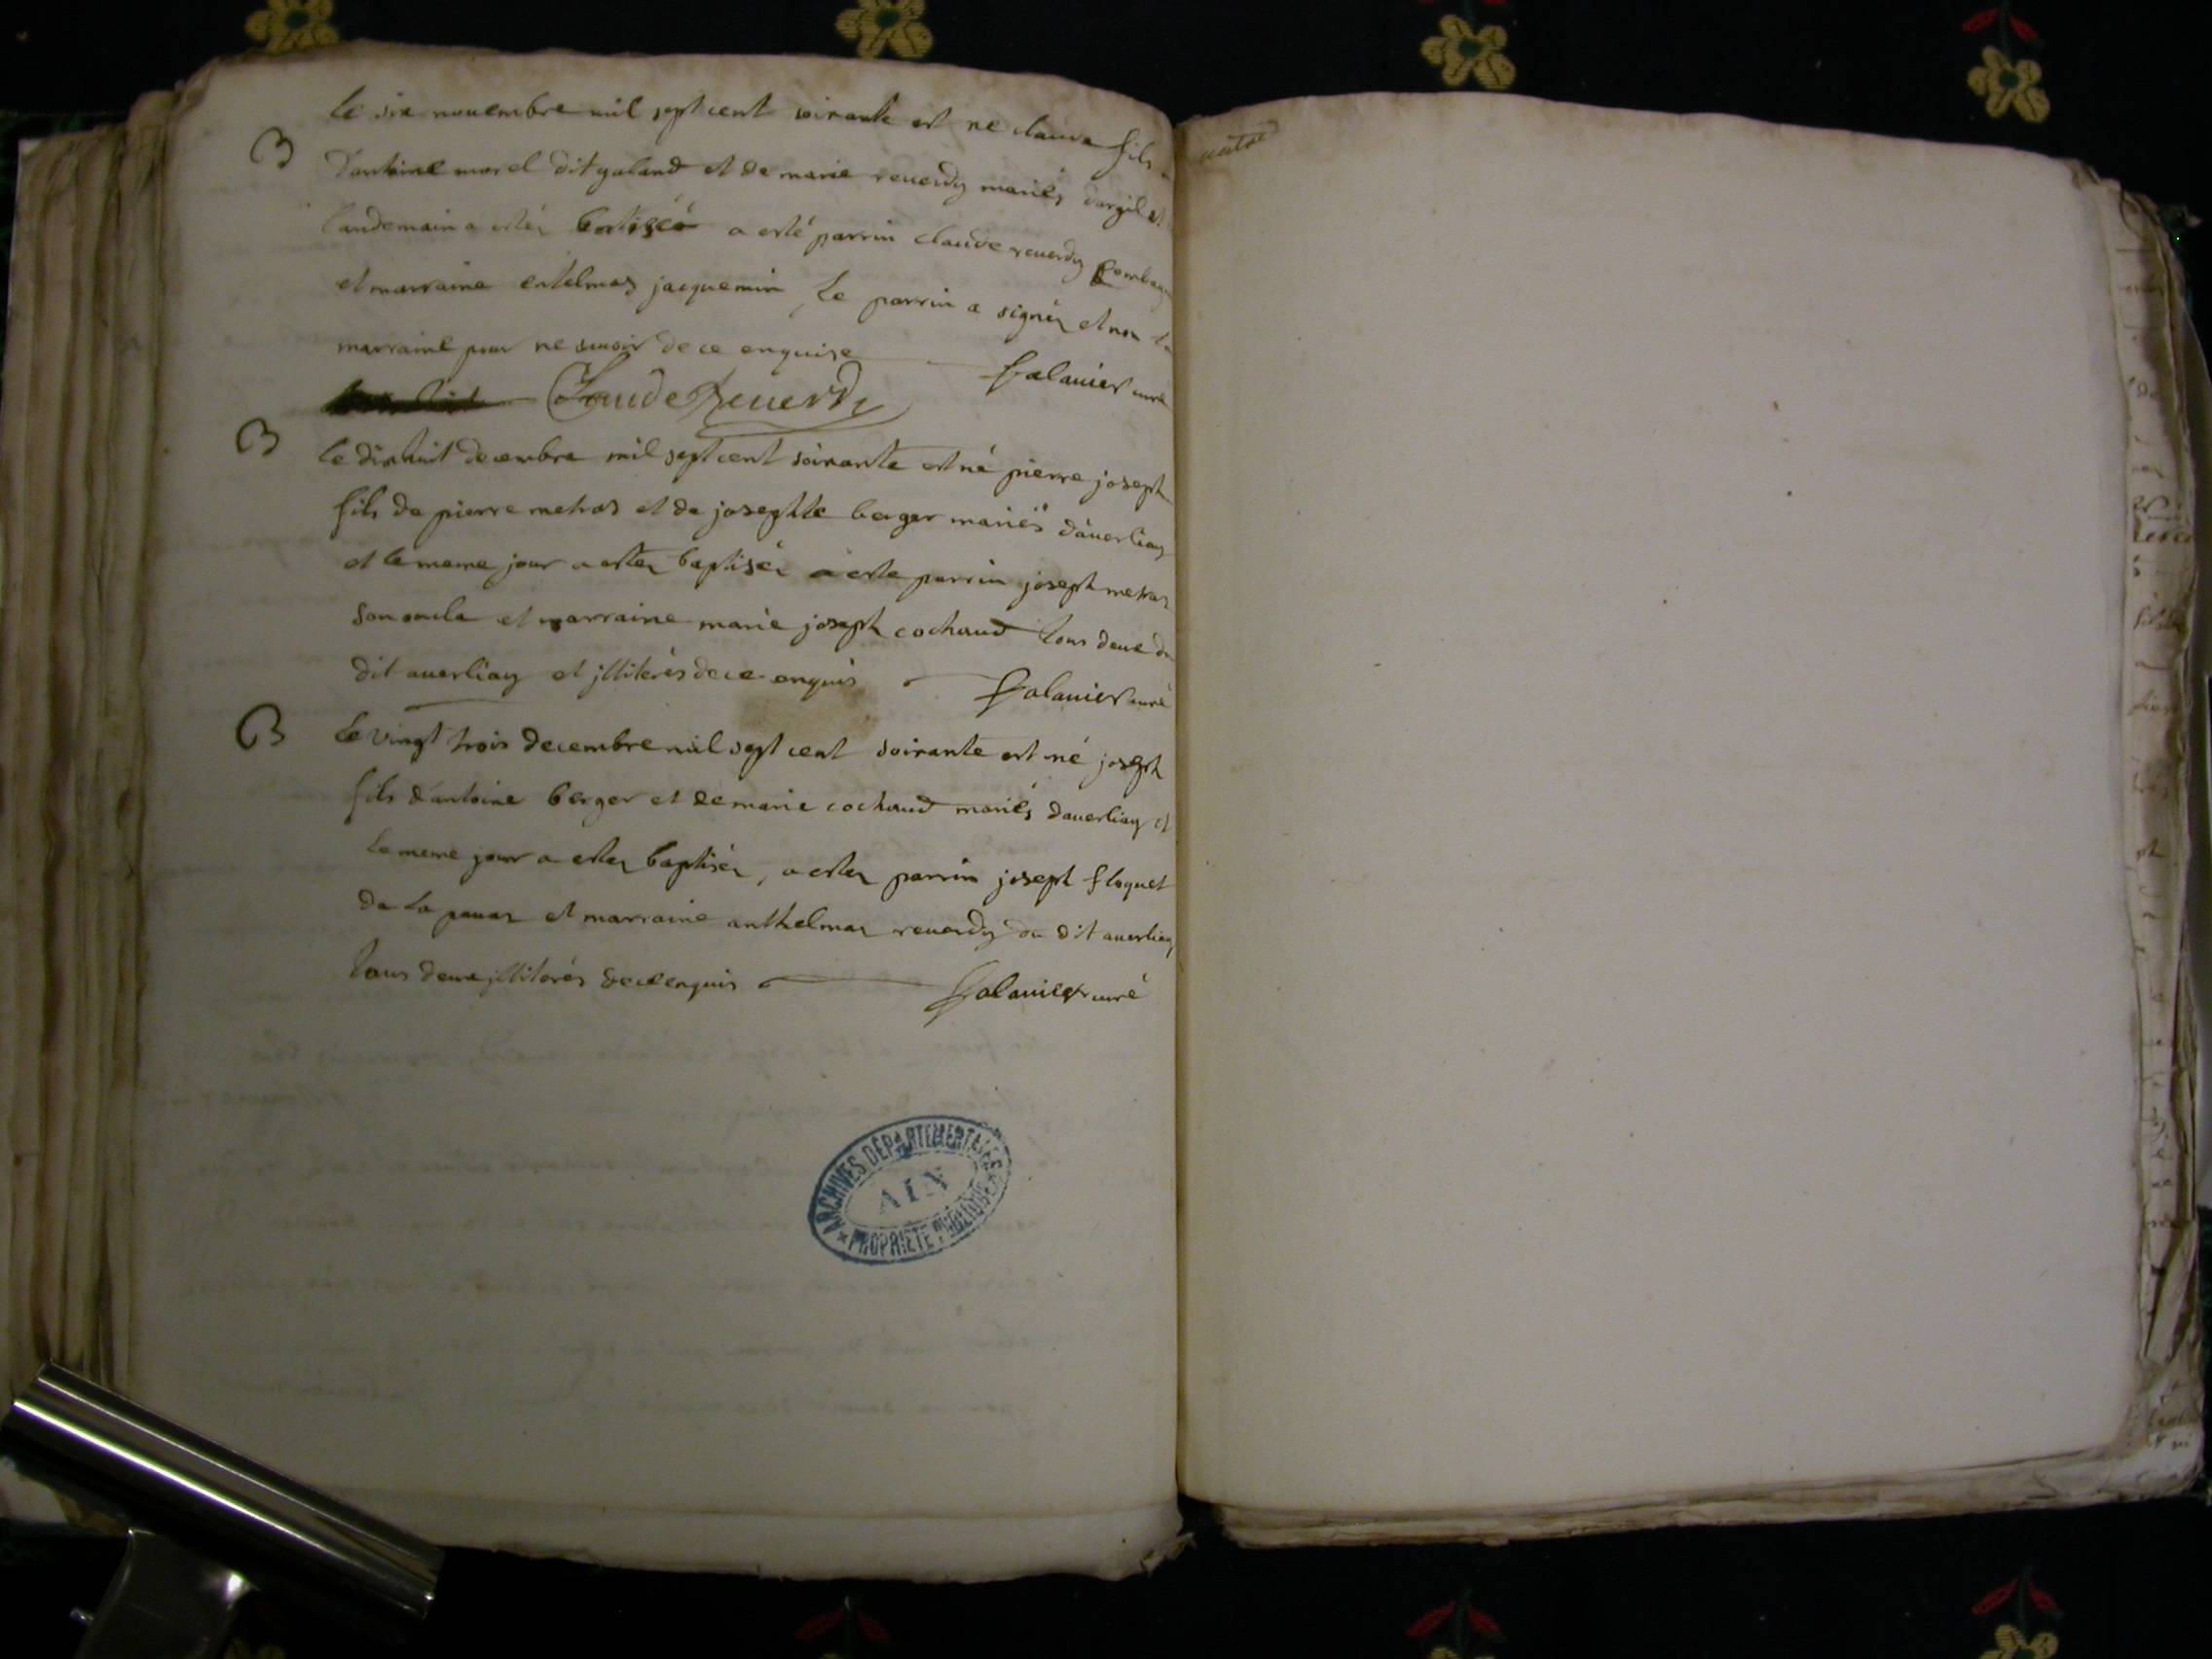 B
le six nouembre mil sept cent soixante est ne claude fils
d'antoine morel dit galand et de marie reuerdy mariés d'argil et
landemain a estéz batiséé a esté parrin claude reuerdy
et marraine entelmaz jacquemin, le parrin a signéz et non la
marraine pour ne sauoir de ce enquise
falauier curé
Claude Reuerdy
B
le dixhuit decembre mil sept cent soixante est né pierre joseph
fils de pierre metras et de josephte berger mariés d'auerliaz
et le meme jour a estez baptiséz a este parrin joseph metraz
son oncle et marraine marie joseph cochaud tous deux du
dit auerliaz et jlliterés de ce enquis
falauier curé
B
le vingt trois decembre mil sept cent soixante est né joseph
fils d'antoine berger et de marie cochaud mariés dauerliaz et
le meme jour a estez baptiséz, a estez parrin joseph floquet
de la et marraine anthelmaz reuerdy du dit auerliaz
tous deux jlliterés de ce enquis
falauier curé
ARCHIVES DÉPARTEMENTALES
AIN
* PROPRIÉTÉ PUBLIQUE *